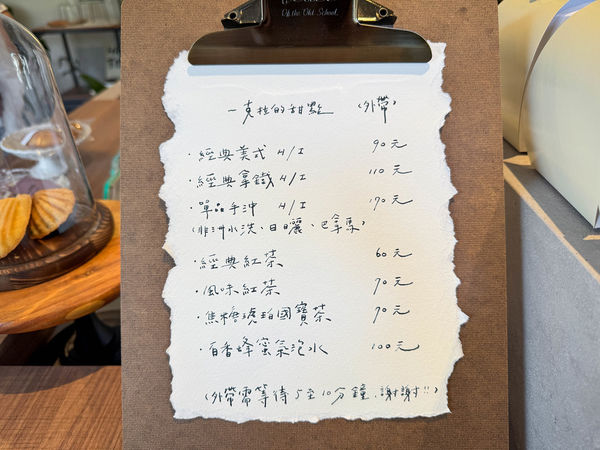 Of the Old School.
一克拉的甜點 (外帶)
・經典美式 H/I 90元
・經典拿鐵 H/I 110元
・單品手沖 H/I 170元
(非洲水洗、日曬、巴拿馬)
・經典紅茶 60元
・風味紅茶 70元
・焦糖琥珀國寶茶 70元
・百香蜂蜜氣泡水 100元
(外帶需等待5至10分鐘,謝謝!!)